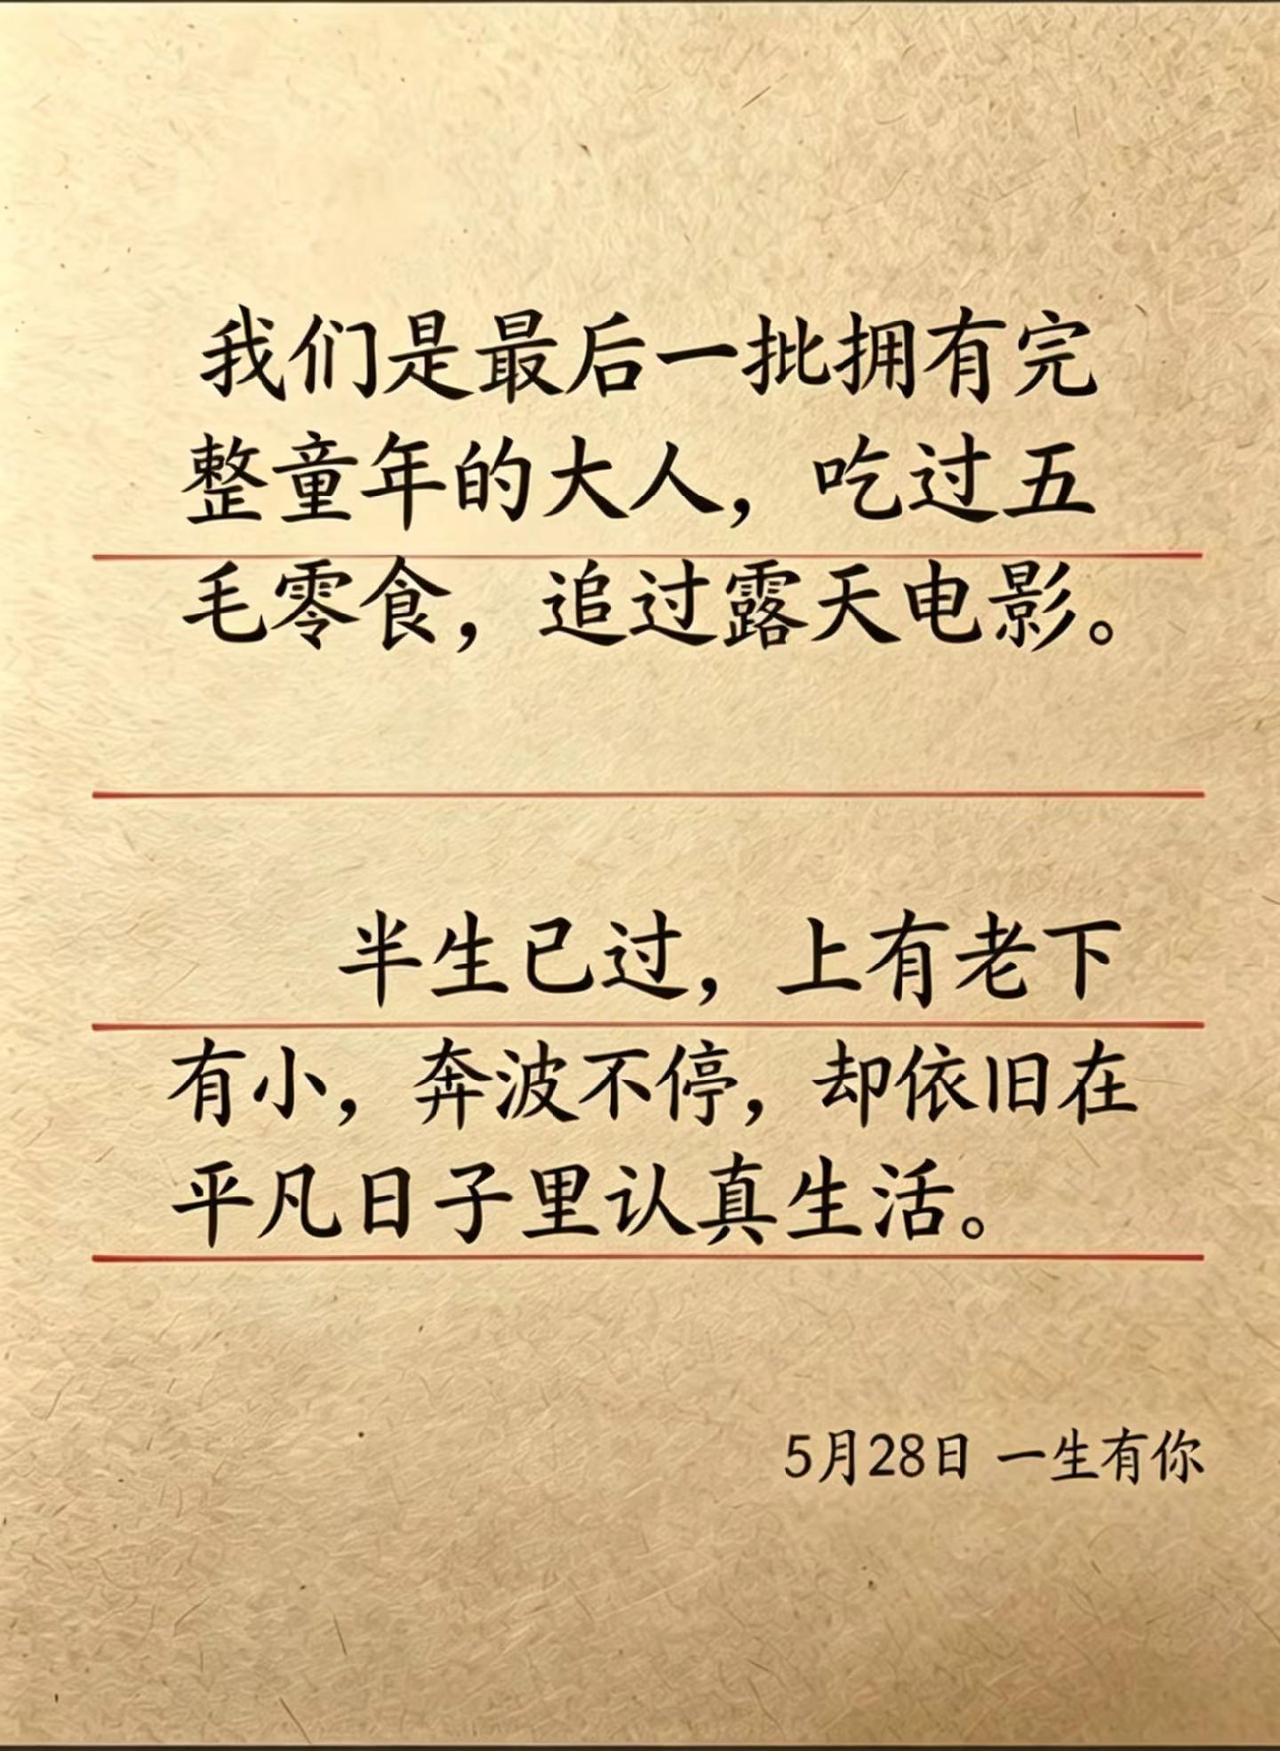 我们是最后一批拥有完
整童年的大人，吃过五
毛零食，追过露天电影。
半生已过，上有老下
有小，奔波不停，却依旧在
平凡日子里认真生活。
5月28日 一生有你